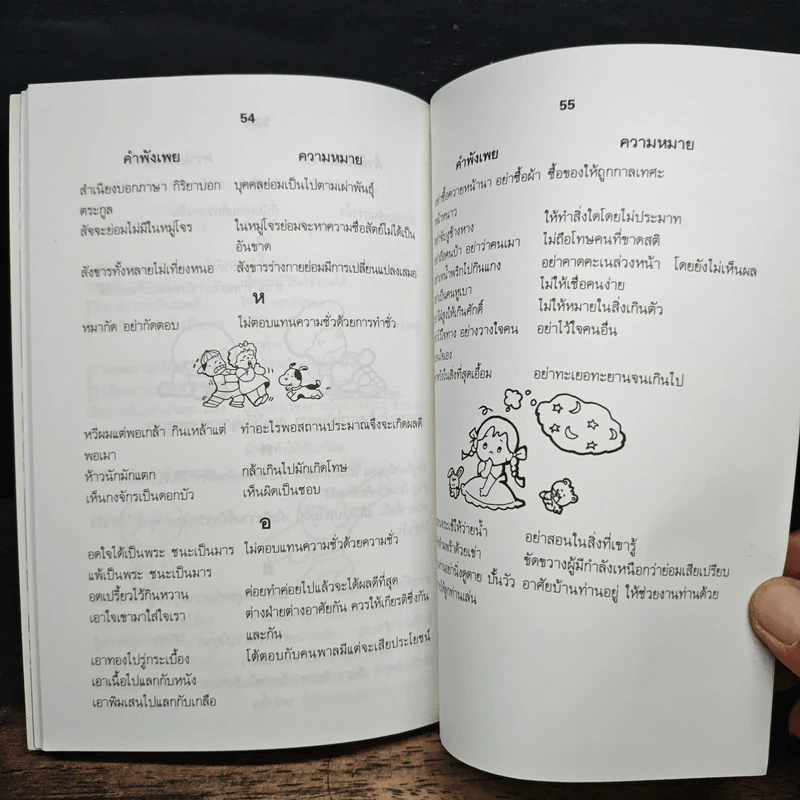 54
คำพังเพย ความหมาย
สำเนียงบอกภาษา กิริยาบอก บุคคลย่อมเป็นไปตามเผ่าพันธุ์
ตระกูล
สัจจะย่อมไม่มีในหมู่โจร ในหมู่โจรย่อมจะหาความซื่อสัตย์ไม่ได้เป็น
อันขาด
สังขารทั้งหลายไม่เที่ยงหนอ สังขารร่างกายย่อมมีการเปลี่ยนแปลงเสมอ
ห
หมากัด อย่ากัดตอบ ไม่ตอบแทนความชั่วด้วยการทำชั่ว
หวีผมแต่พอเกล้า กินเหล้าแต่ ทำอะไรพอสถานประมาณจึงจะเกิดผลดี
พอเมา
ห้าวนักมักแตก กล้าเกินไปมักเกิดโทษ
เห็นกงจักรเป็นดอกบัว เห็นผิดเป็นชอบ
อ
อดใจได้เป็นพระ ชนะเป็นมาร ไม่ตอบแทนความชั่วด้วยความชั่ว
แพ้เป็นพระ ชนะเป็นมาร
อดเปรี้ยวไว้กินหวาน ค่อยทำค่อยไปแล้วจะได้ผลดีที่สุด
เอาใจเขามาใส่ใจเรา ต่างฝ่ายต่างอาศัยกัน ควรให้เกียรติซึ่งกัน
และกัน
เอาทองไปรู่กระเบื้อง โต้ตอบกับคนพาลมีแต่จะเสียประโยชน์
เอาเนื้อไปแลกกับหนัง
เอาพิมเสนไปแลกกับเกลือ
55
คำพังเพย ความหมาย
ซื้อควายหน้านา อย่าซื้อผ้า ซื้อของให้ถูกกาลเทศะ
หน้าหนาว
ให้ทำสิ่งใดโดยไม่ประมาท
คนบ้า อย่าว่าคนเมา ไม่ถือโทษคนที่ขาดสติ
พริกไปกินแกง อย่าคาดคะเนล่วงหน้า โดยยังไม่เห็นผล
เป็นคนหูเบา ไม่ให้เชื่อคนง่าย
สูงให้เกินศักดิ์ ไม่ให้หมายในสิ่งเกินตัว
ไว้ใจทาง อย่างวางใจคน อย่าไว้ใจคนอื่น
ในสิ่งที่สุดเอื้อม อย่าทะเยอทะยานจนเกินไป
จระเข้ให้ว่ายน้ำ อย่าสอนในสิ่งที่เขารู้
พร้าด้วยเข่า ขัดขวางผู้มีกำลังเหนือกว่าย่อมเสียเปรียบ
อย่านิ่งดูดาย ปั้นวัว อาศัยบ้านท่านอยู่ ให้ช่วยงานท่านด้วย
ลูกท่านเล่น